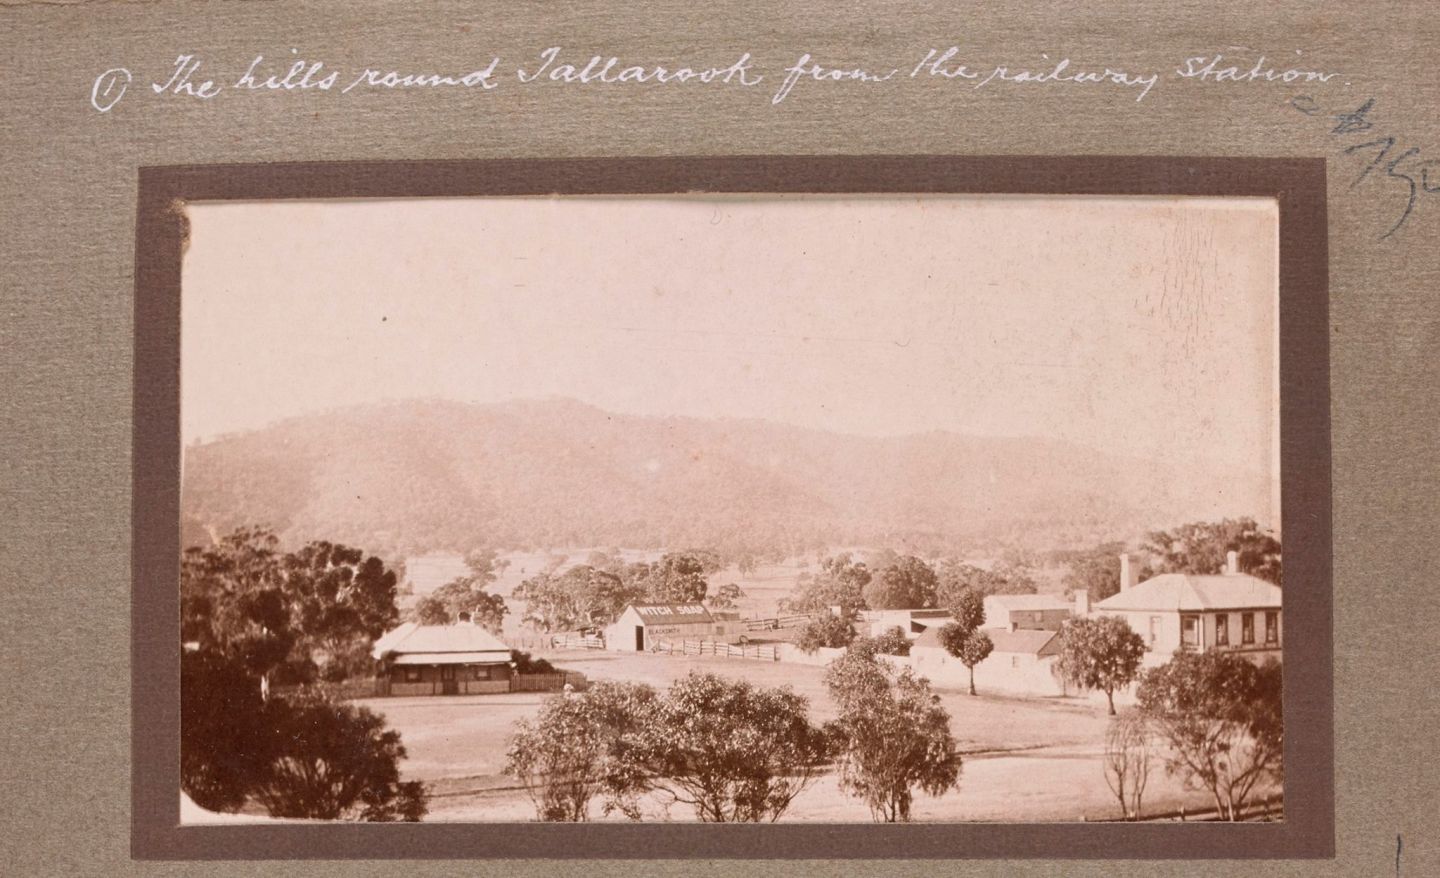 ① The hills round Tallarook from the railway Station.
WITCH SOAP
BLACKSMITH